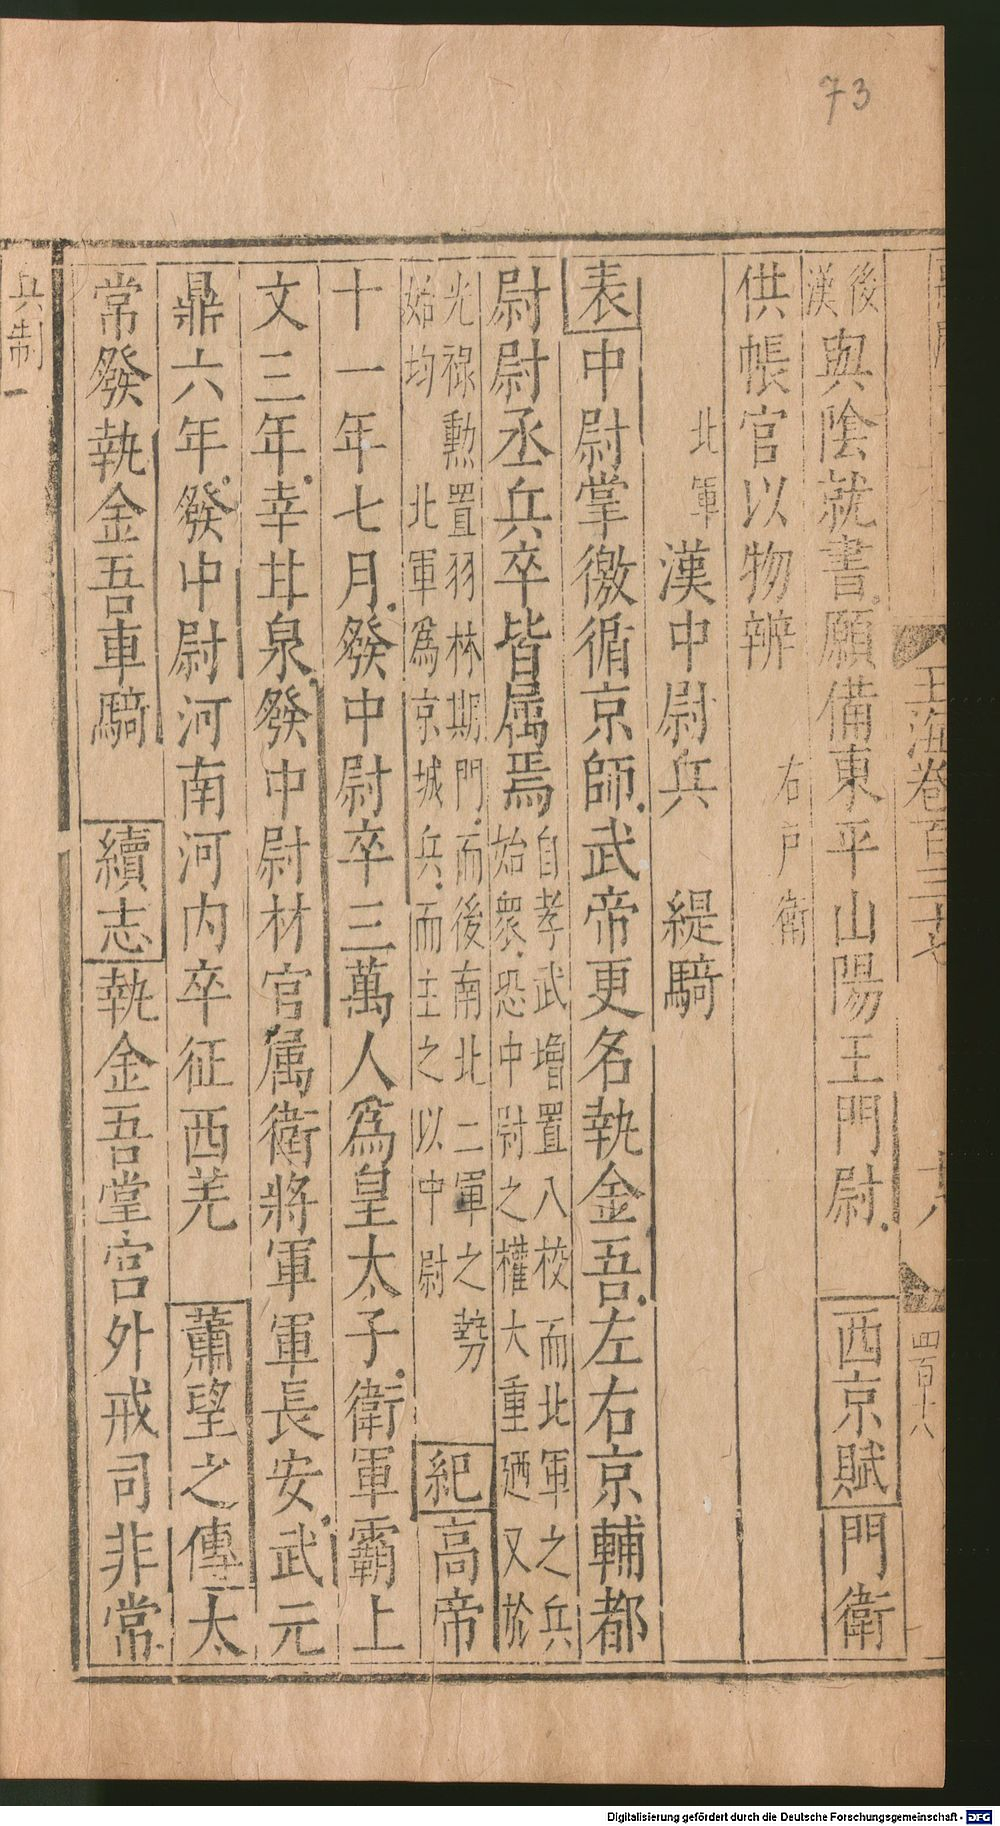 73
玉海卷百三十七
四百十八
後漢與陰就書願備東平山陽王門尉西京賦門衛
供帳官以物辨 右戶衛
北軍 漢中尉兵 緹騎
表中尉掌徼循京師武帝更名執金吾左右京輔都
尉尉丞兵卒皆属焉自孝武增置八校而北軍之兵始衆恐中尉之權大重廼又於
光祿勲置羽林期門而後南北二軍之勢始均北軍爲京城兵而主之以中尉紀高帝
十一年七月發中尉卒三萬人爲皇太子衛軍霸上
文三年幸甘泉發中尉材官属衛將軍軍長安武元
鼎六年發中尉河南河内卒征西羌 蕭望之傳太
常發執金吾車騎 續志執金吾掌宫外戒司非常
兵制一
Digitalisierung gefördert durch die Deutsche Forschungsgemeinschaft - DFG